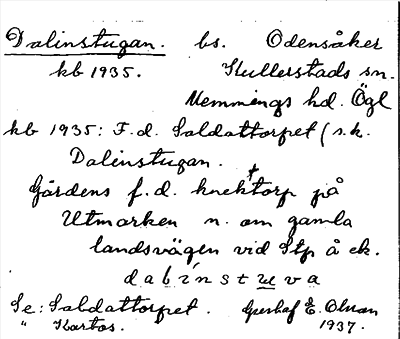 Dalinstugan. bs. Odensåker
kb 1935. Skullerstads sn.
Memmings hd. Ögl
kb 1935: F.d. Soldattorpet (s.k.
Dalinstugan.
Gårdens f.d. knektorp på
Utmarken n. om gamla
landsvägen vid Stp å ek.
dalinstuva
Se: Soldattorpet. Gustaf E. Olsson
" Kartos. 1937.